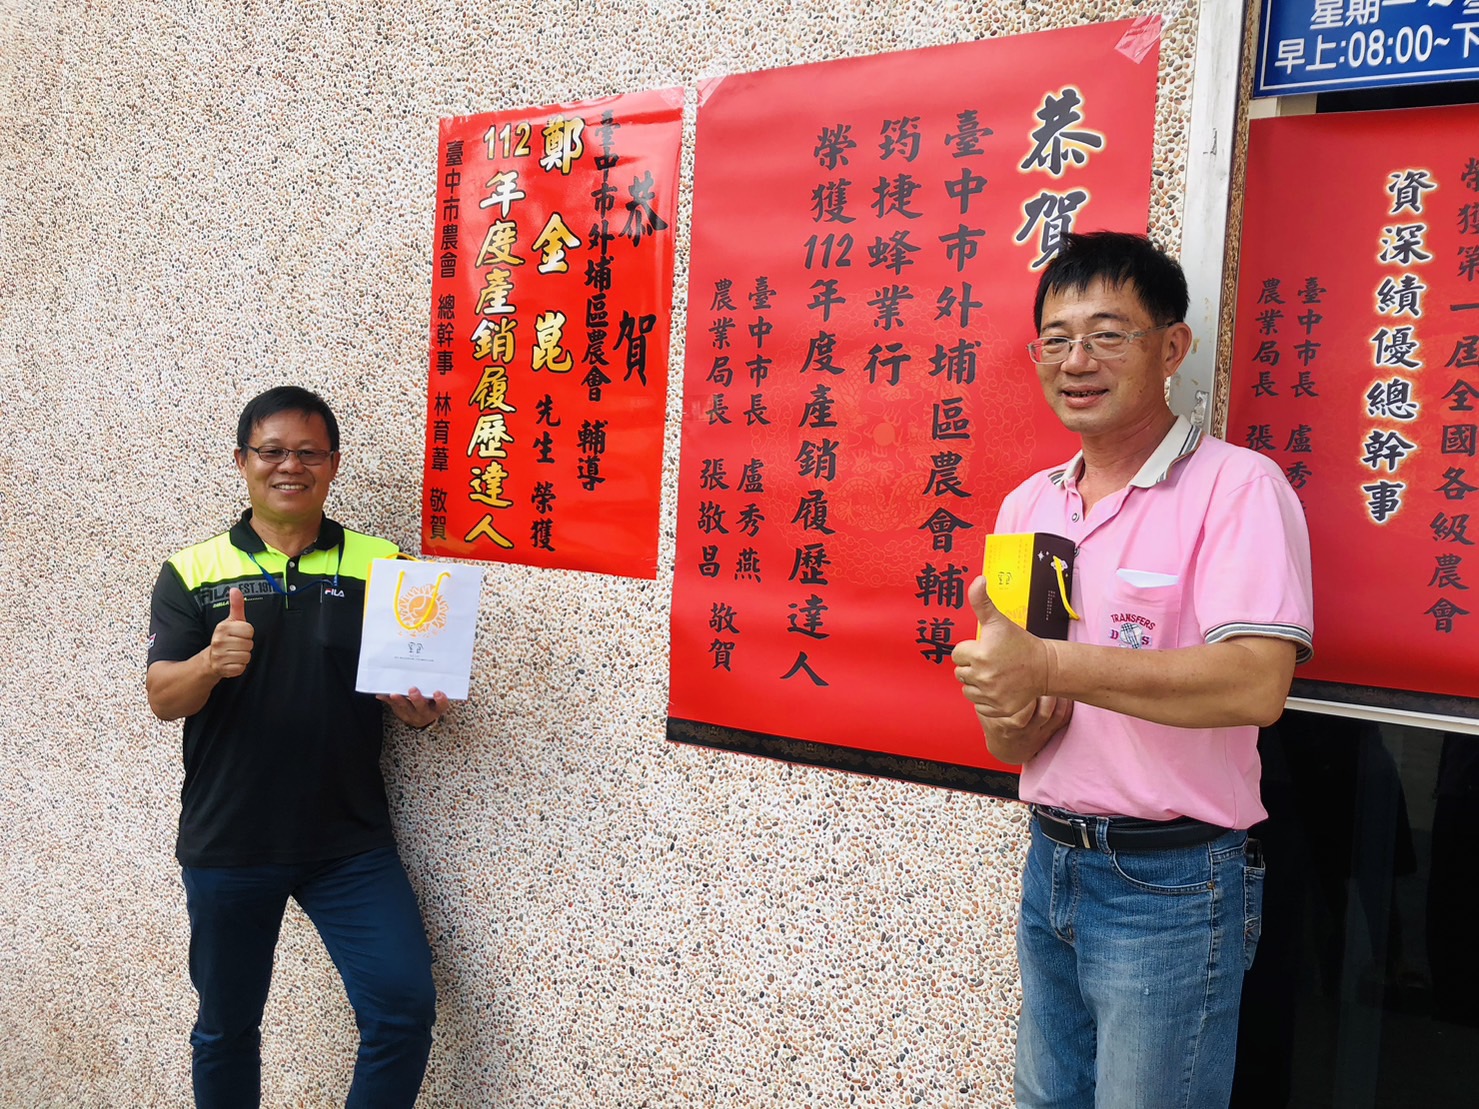 恭賀
臺中市外埔區農會 輔導
鄭金崑 先生 榮獲
112年度產銷履歷達人
臺中市農會 總幹事 林育葦 敬賀
恭賀
臺中市外埔區農會輔導
筠捷蜂業行
榮獲112年度產銷履歷達人
臺中市長 盧秀燕
農業局長 張敬昌 敬賀
榮獲第一屆全國各級農會
資深績優總幹事
臺中市長 盧秀
農業局長 張
星期一~
早上:08:00~下
FILA
EST.191
FILA
TRANSFERS
D S